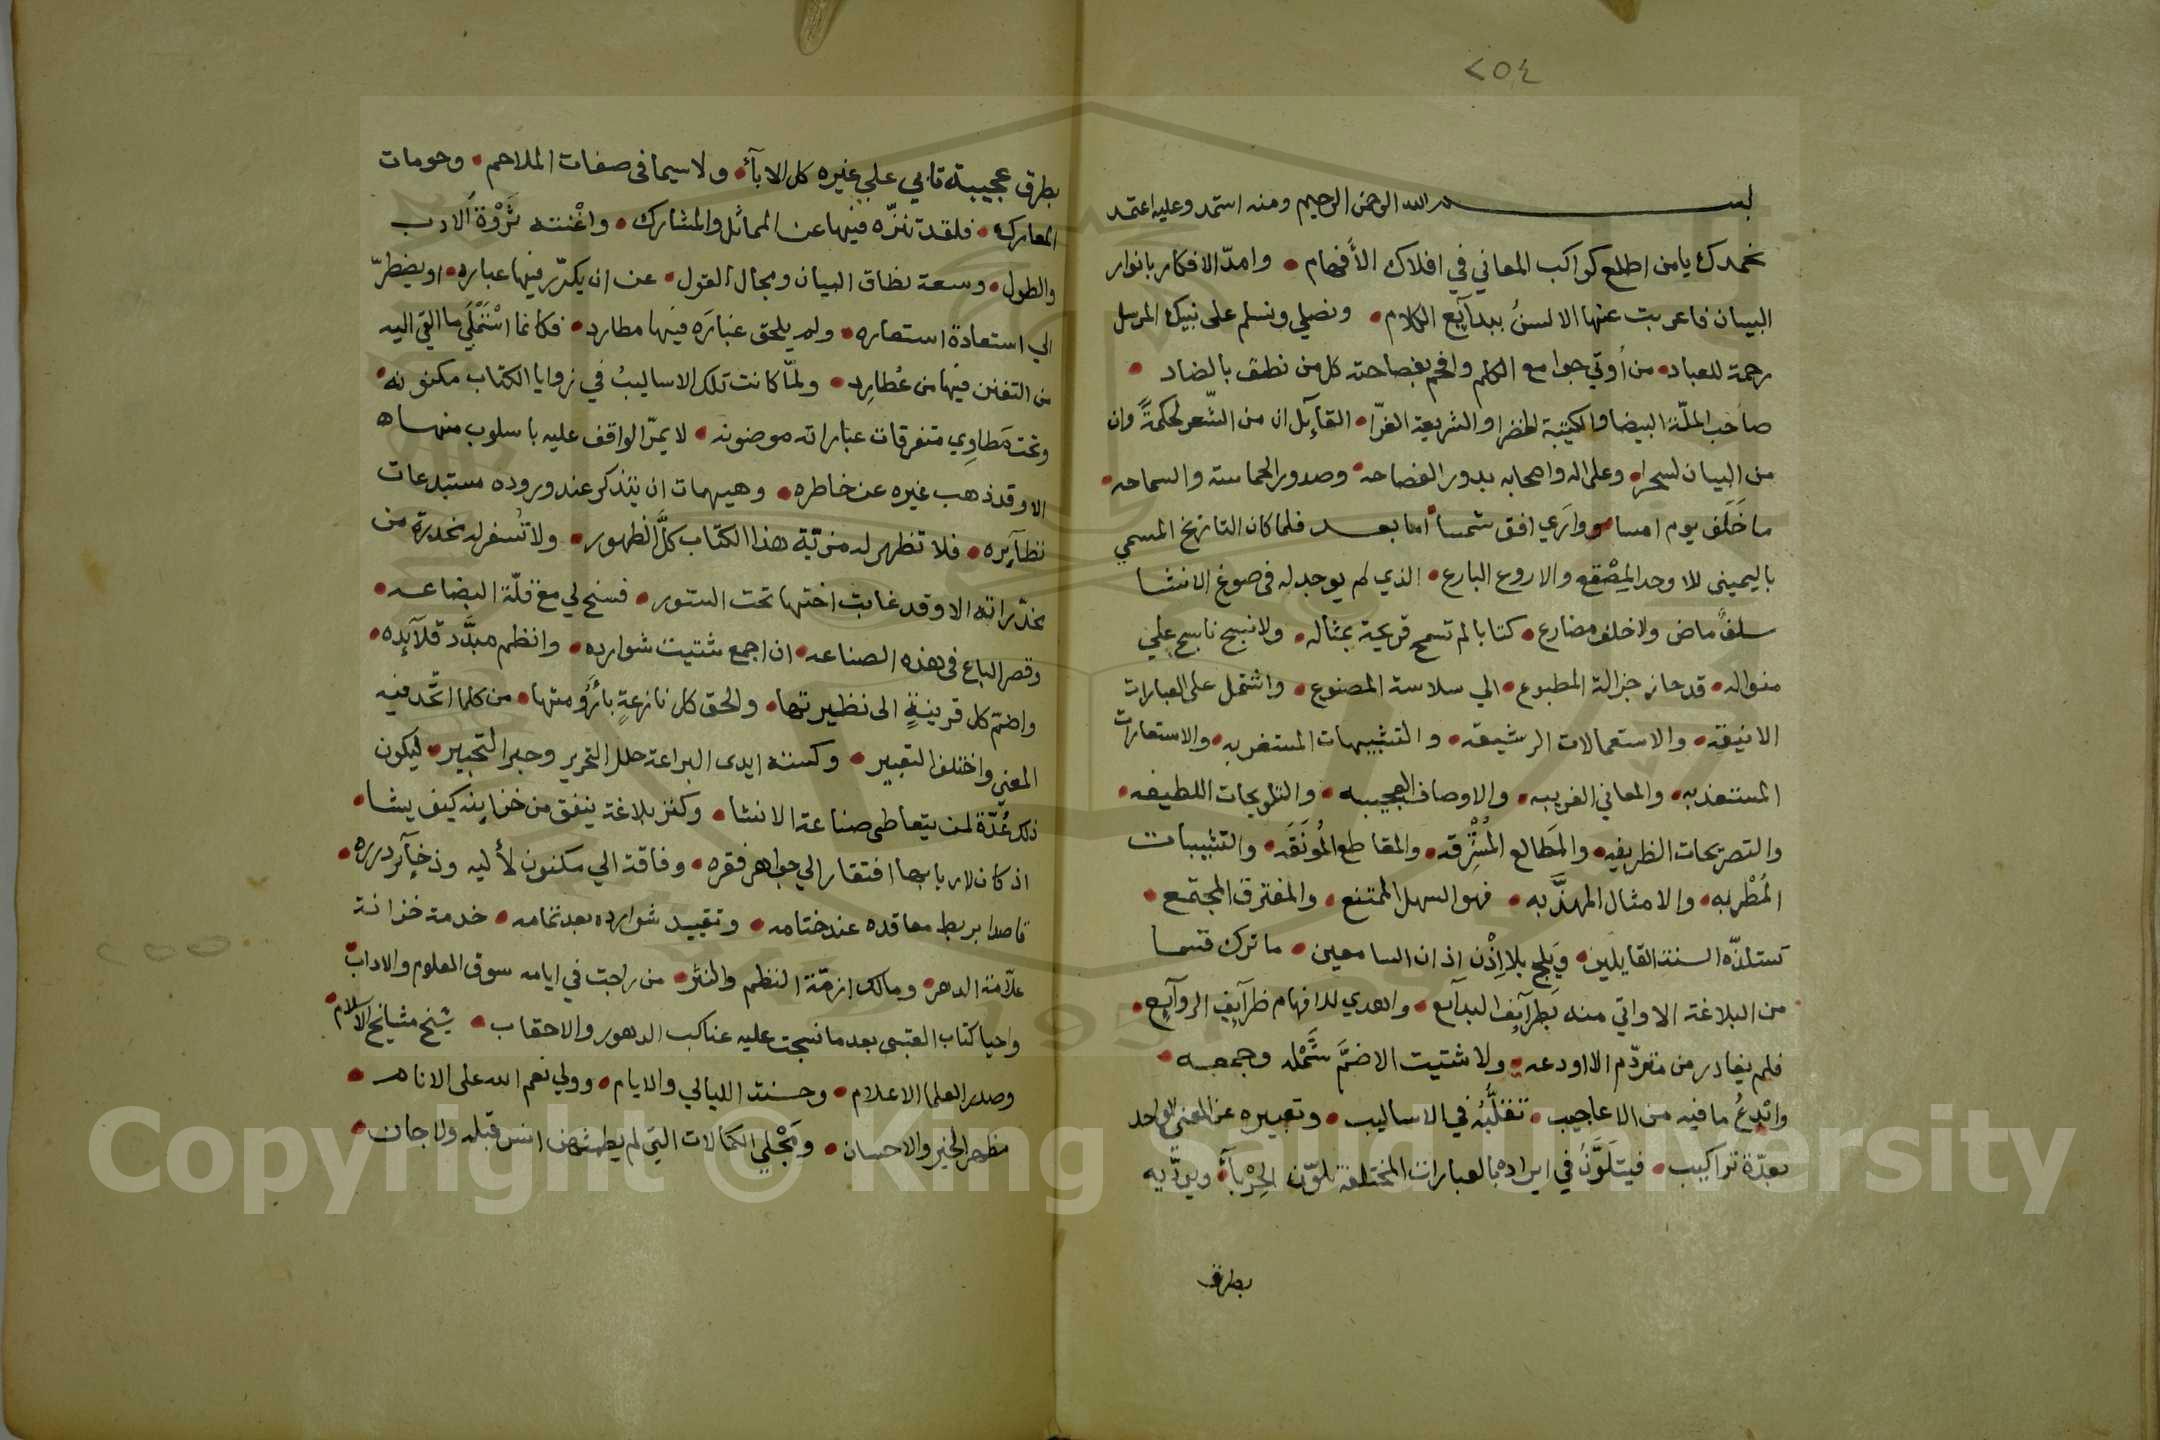 ٢٥٤
بسم الله الرحمن الرحيم ومنه استمد وعليه اعتمد
نحمدك يا من اطلع كواكب المعاني في افلاك الأفهام • وامدّ الافكار بانوار
البيان فاعربت عنها الالسنُ ببدآيع الكلام • ونصلي ونسلم على نبيك المرسل
رحمة للعباد • من اُوتي جوامع الكلم وافحم بفصاحته كل من نطق بالضاد •
صاحب الملّة البيضا والكتيبة الخضرا والشريعة الغرّا • القآيل ان من الشّعر لحكمةً وان
من البيان لسحرا • وعلى اله واصحابه بدور الفصاحه • وصدور الحماسة والسماحه •
ما خَلَف يوم امسا • ووارَي افق شمسا • أما بعد فلما كان التاريخ المسمي
باليميني للاوحد المِصْقع والاروع البارع • الذي لم يوجد له في صوغ الانشا
سلفٌ ماض ولا خلف مضارع • كتابا لم تسمح قريحة بمثاله • ولا نسج ناسج علي
منواله • قد حاز جزالة المطبوع • الي سلاسة المصنوع • واشتمل على العبارات
الانيقه • والاستعمالات الرشيقه • والتشبيهات المستغربه • والاستعارات
المستعذبه • والمعاني الغريبه • والاوصاف العجيبه • والتلويحات اللطيفه •
والتصريحات الظريفه • والمَطالع المُشْرقه • والمقاطع المُونَقَه • والتشبيبات
المُطْربه • والامثال المهذَّبه • فهو السهل الممتنع • والمفترق المجتمع •
تستلذّه السنة القايلين • وَيلج بلا اِذْن اذان السامعين • ما ترك قسما
من البلاغة الا واتي منه بَطرآيف البدآيع • واهدي للافهام ظرآيف الروآيع •
فلم يغادر من متردّم الا اودعه • ولا شتيت الا ضمَّ شَمْله وجمعه •
وابْدعُ ما فيه من الاعاجيب • تقلّبُه في الاساليب • وتعبيره عن المعني الواحد
بعدّة تراكيب • فيتلوَّنُ في ايراده بالعبارات المختلفة تلوّن الحِرْبآء • ويودّيه
بطرق
بطرق عجيبة تابي علي غيره كل الابآء • ولا سيما في صفات الملاحم • وحومات
المعارك • فلقد تنزّه فيها عن المماثل والمشارك • واغْنته ثَرْوة الادب
والطول • وسعة نطاق البيان ومجال القول • عن ان يكرّر فيها عباره • او يضطرّ
الي استعادة استعاره • ولم يلحق غبارَه فيها مطارد • فكانما اسْتَمْلَي ما القي اليه
من التفنن فيها من عُطارِد • ولمّا كانت تلك الاساليبُ في زوايا الكتاب مكنونه •
وتحت مَطاوِي متفرقات عباراته موضونه • لا يمرّ الواقف عليه باسلوب منها
الا وقد ذهب غيره عن خاطره • وهيهات ان يتذكر عند وروده مستبدعات
نظآيره • فلا تظهر له مزيّة هذا الكتاب كلَّ الظهور • ولا تُسفر له مخدرة من
مخدّراته الا وقد غابت اختها تحت الستور • فسنح لي مع قلّة البضاعه •
وقصر الباع في هذه الصناعه • ان اجمع شتيت شوارده • وانظم مبدَّد قلآيده •
واضمّ كل قرينةٍ الى نظيرتها • والحق كل نازعةٍ بأَرُومتها • من كلما اتّحد فيه
المعني واختلف التعبير • وكسته ايدى البراعة حلل التحرير وحبر التحبير • ليكون
ذلك عُدّة لمن يتعاطي صناعة الانشا • وكنز بلاغة ينفق من خزاينه كيف يشا •
اذ كان لاربابها افتقار الي جواهر فقره • وفاقة الي مكنون لأليه وذخآير درره •
قاصدا بربط معاقده عند ختامه • وتقييد شوارده بعد تمامه • خدمة خزانة
علّامة الدهر • ومالك ازمّة النظم والنثر • من راجت في ايامه سوق العلوم والاداب •
واحيا كتاب العتبي بعد ما نسجت عليه عناكب الدهور والاحقاب • شيخ مشايخ الاسلام •
وصدر العلما الاعلام • وحسنة الليالي والايام • وولي نعم الله على الانام •
مظهر الخير والاحسان • ومَجْلي الكمالات التي لم يطمثهن انس قبله ولا جان •
Copyright © King Saud University
1957